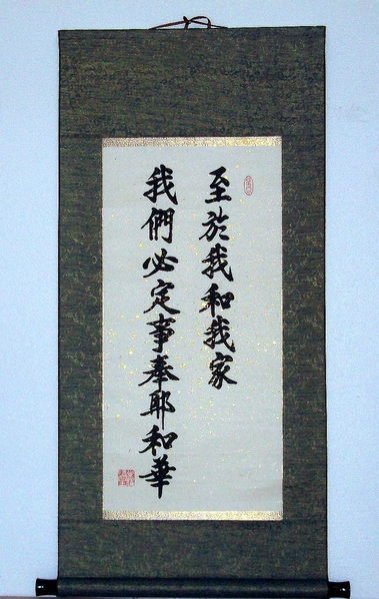 至於我和我家
我們必定事奉耶和華